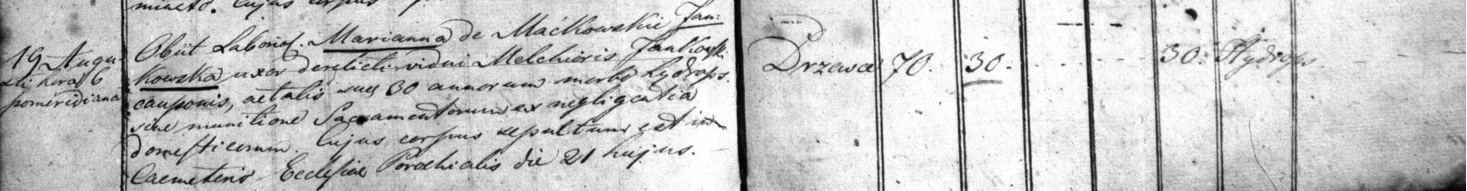 mineto. Cujus corpus
19 Augu-
sti hora 6
pomeridiana
Obiit Laborios. Marianna de Maćkowskie Jan-
kowska uxor derelicti vidui Melchioris Jankowski
cauponis, aetatis suae 30 annorum morbo hydrops.
sine munitione Sacramentorum ex negligentia
domesticorum. Cujus corpus sepultum est in
Caemeterio Ecclesiae Parochialis die 21 hujus.
Drzewce 70. 30. 30. Hydrops.